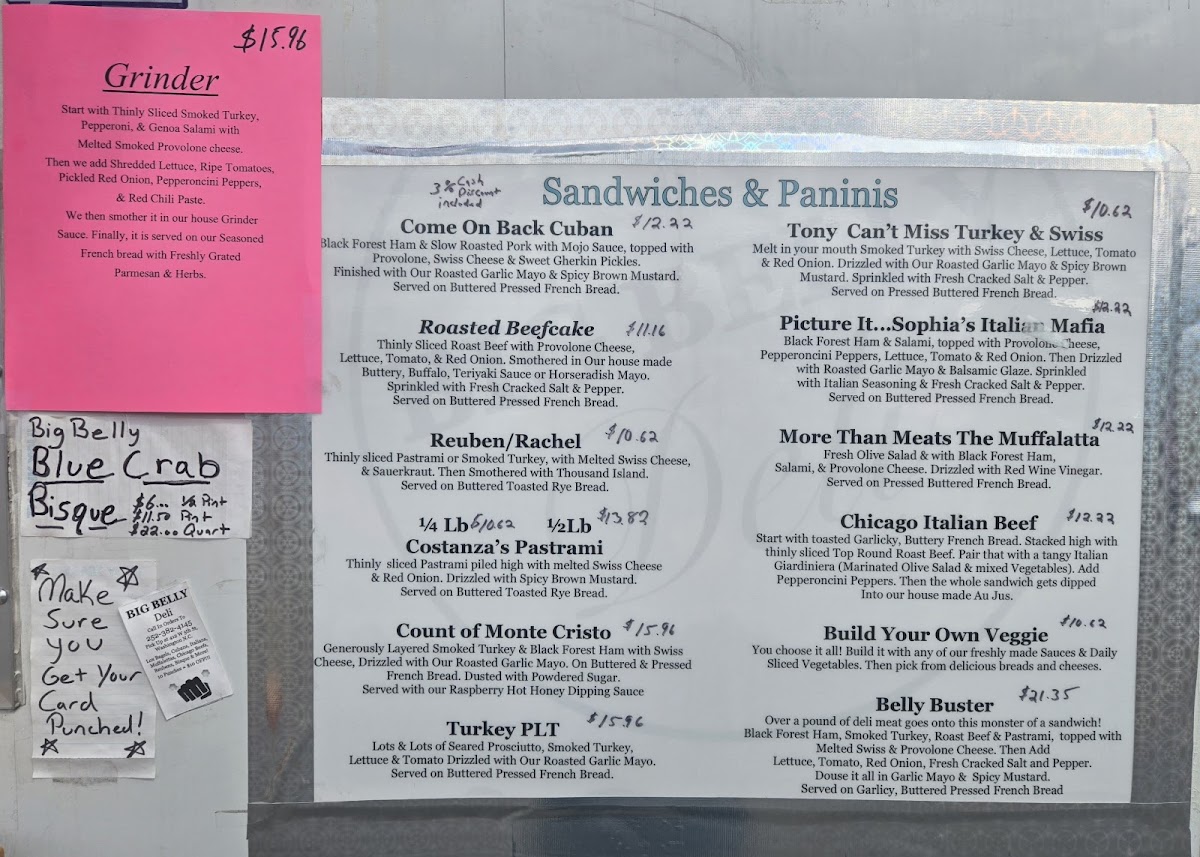 $15.96
Grinder
Start with Thinly Sliced Smoked Turkey,
Pepperoni, & Genoa Salami with
Melted Smoked Provolone cheese.
Then we add Shredded Lettuce, Ripe Tomatoes,
Pickled Red Onion, Pepperoncini Peppers,
& Red Chili Paste.
We then smother it in our house Grinder
Sauce. Finally, it is served on our Seasoned
French bread with Freshly Grated
Parmesan & Herbs.
Big Belly
Blue Crab
Bisque
$6.00 1/2 Pint
$11.50 Pint
$22.00 Quart
Make
Sure
you
Get Your
Card
Punched!
BIG BELLY
Deli
Call In Orders To
252-382-4145
Washington N.C.
3% Cash
Discount
included
Sandwiches & Paninis
Come On Back Cuban $12.22
Black Forest Ham & Slow Roasted Pork with Mojo Sauce, topped with
Provolone, Swiss Cheese & Sweet Gherkin Pickles.
Finished with Our Roasted Garlic Mayo & Spicy Brown Mustard.
Served on Buttered Pressed French Bread.
Roasted Beefcake $11.16
Thinly Sliced Roast Beef with Provolone Cheese,
Lettuce, Tomato, & Red Onion. Smothered in Our house made
Buttery, Buffalo, Teriyaki Sauce or Horseradish Mayo.
Sprinkled with Fresh Cracked Salt & Pepper.
Served on Buttered Pressed French Bread.
Reuben/Rachel $10.62
Thinly sliced Pastrami or Smoked Turkey, with Melted Swiss Cheese,
& Sauerkraut. Then Smothered with Thousand Island.
Served on Buttered Toasted Rye Bread.
1/4 Lb $10.62 1/2Lb $13.82
Costanza's Pastrami
Thinly sliced Pastrami piled high with melted Swiss Cheese
& Red Onion. Drizzled with Spicy Brown Mustard.
Served on Buttered Toasted Rye Bread.
Count of Monte Cristo $15.96
Generously Layered Smoked Turkey & Black Forest Ham with Swiss
Cheese, Drizzled with Our Roasted Garlic Mayo. On Buttered & Pressed
French Bread. Dusted with Powdered Sugar.
Served with our Raspberry Hot Honey Dipping Sauce
Turkey PLT $15.96
Lots & Lots of Seared Prosciutto, Smoked Turkey,
Lettuce & Tomato Drizzled with Our Roasted Garlic Mayo.
Served on Buttered Pressed French Bread.
$10.62
Tony Can't Miss Turkey & Swiss
Melt in your mouth Smoked Turkey with Swiss Cheese, Lettuce, Tomato
& Red Onion. Drizzled with Our Roasted Garlic Mayo & Spicy Brown
Mustard. Sprinkled with Fresh Cracked Salt & Pepper.
Served on Pressed Buttered French Bread.
$12.22
Picture It...Sophia's Italian Mafia
Black Forest Ham & Salami, topped with Provolone Cheese,
Pepperoncini Peppers, Lettuce, Tomato & Red Onion. Then Drizzled
with Roasted Garlic Mayo & Balsamic Glaze. Sprinkled
with Italian Seasoning & Fresh Cracked Salt & Pepper.
Served on Buttered Pressed French Bread.
$12.22
More Than Meats The Muffalatta
Fresh Olive Salad & with Black Forest Ham,
Salami, & Provolone Cheese. Drizzled with Red Wine Vinegar.
Served on Pressed Buttered French Bread.
Chicago Italian Beef $12.22
Start with toasted Garlicky, Buttery French Bread. Stacked high with
thinly sliced Top Round Roast Beef. Pair that with a tangy Italian
Giardiniera (Marinated Olive Salad & mixed Vegetables). Add
Pepperoncini Peppers. Then the whole sandwich gets dipped
Into our house made Au Jus.
$10.62
Build Your Own Veggie
You choose it all! Build it with any of our freshly made Sauces & Daily
Sliced Vegetables. Then pick from delicious breads and cheeses.
Belly Buster $21.35
Over a pound of deli meat goes onto this monster of a sandwich!
Black Forest Ham, Smoked Turkey, Roast Beef & Pastrami, topped with
Melted Swiss & Provolone Cheese. Then Add
Lettuce, Tomato, Red Onion, Fresh Cracked Salt and Pepper.
Douse it all in Garlic Mayo & Spicy Mustard.
Served on Garlicy, Buttered Pressed French Bread